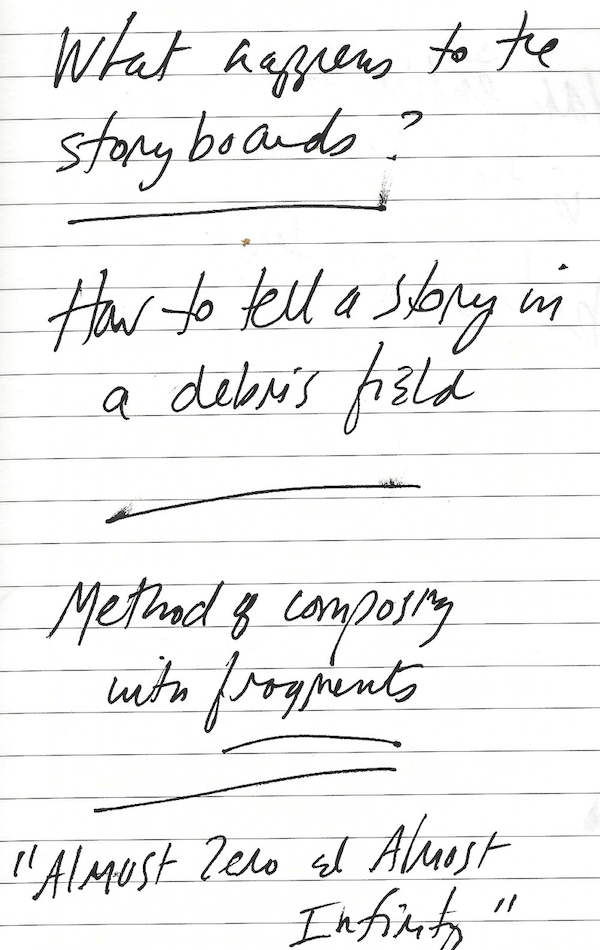 What happens to the
storyboards?
How to tell a story in
a debris field
Method of composing
with fragments
"Almost Zero and Almost
Infinity"